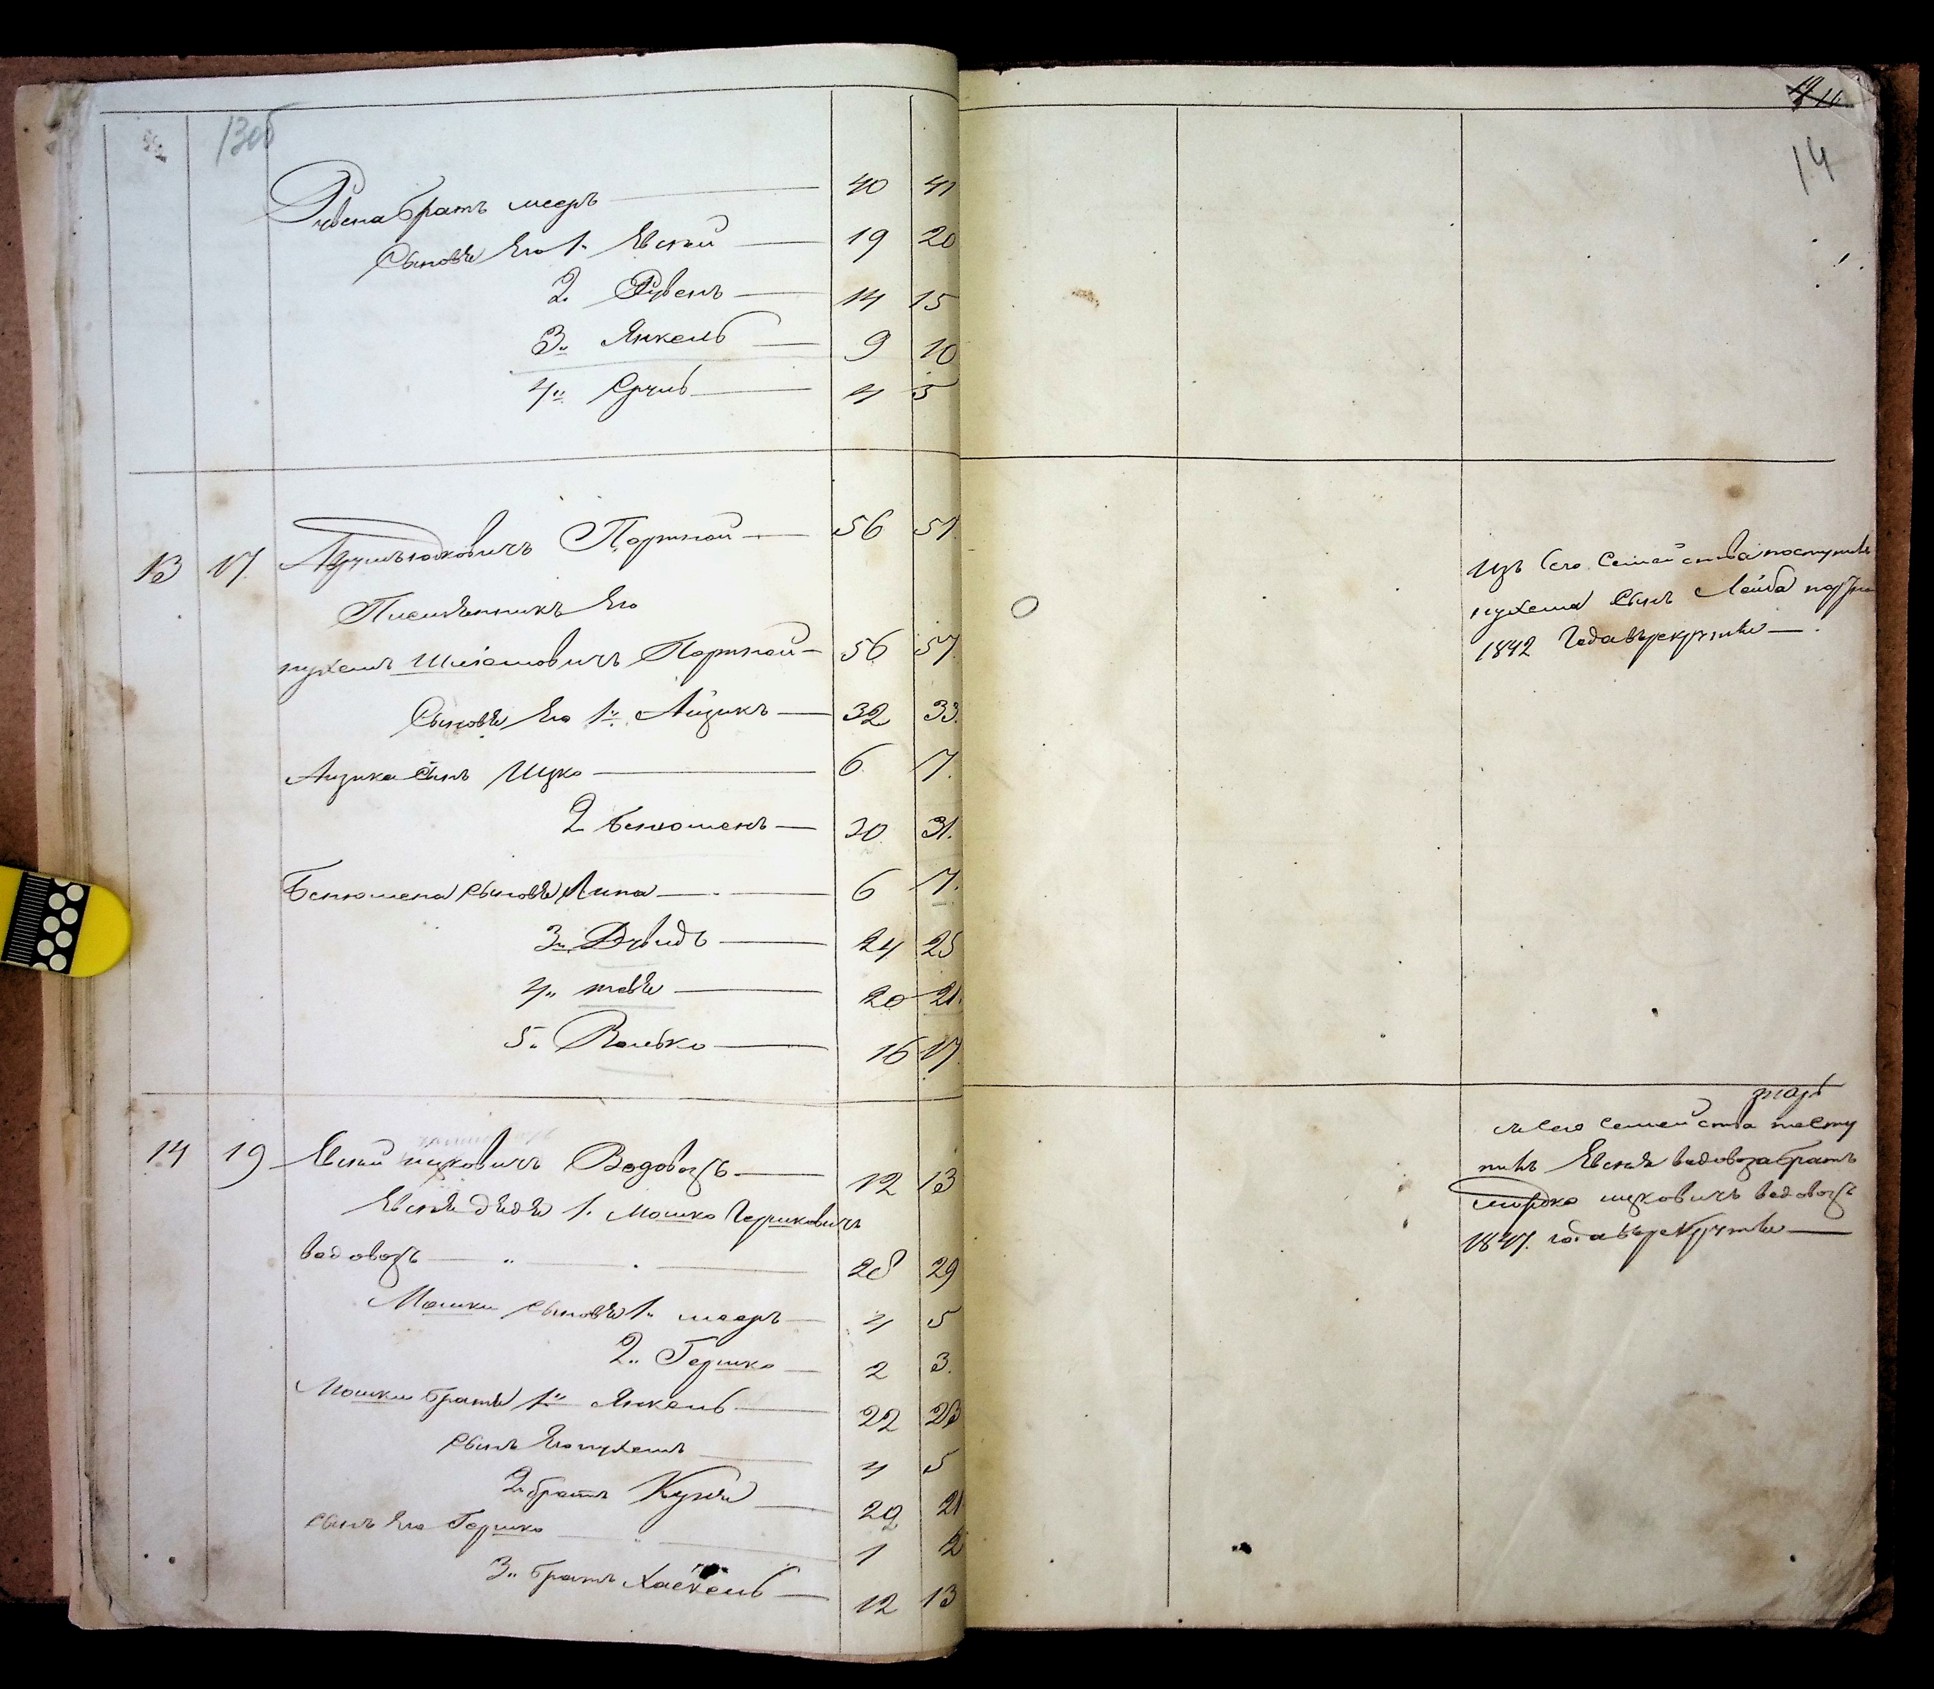 13об
Рувена братъ Меер 40 41
Сыновья Его 1. Евсей 19 20
2. Рувенъ 14 15
3. Янкель 9 10
4. Сруль 4 5
13 17. Портной 56 57.
Племянникъ Его
Нухемъ Портной 56 57.
Сыновья Его 1. Айзикъ 32 33.
Айзика Сынъ Ицко 6 7.
2 Бенюменъ 30 31.
Бенюмена Сыновья 6 7.
3. Дувидъ 24 25
4. 20 21.
5. Волько 16 17.
14 19 Евсей Ицковичъ Водовозъ 12 13
Евсея дядя 1. Мошко Гершковичъ
водовозъ 28 29
Мошки Сыновья 1. Мееръ 4 5
2. Гершко 2 3.
Мошки братья 1. Янкель 22 23
Сынъ Его Нухемъ 4 5
2 братъ 20 21
Сынъ Его Гершко 1 2
3. братъ Хаскель 12 13
14
Изъ Сего Семейства поступилъ
Нухема Сынъ Лейба
1842 Года въ рекруты
Семейства посту
пилъ Евсея водовоза братъ
Ицковичъ водовозъ
1847. года въ рекруты